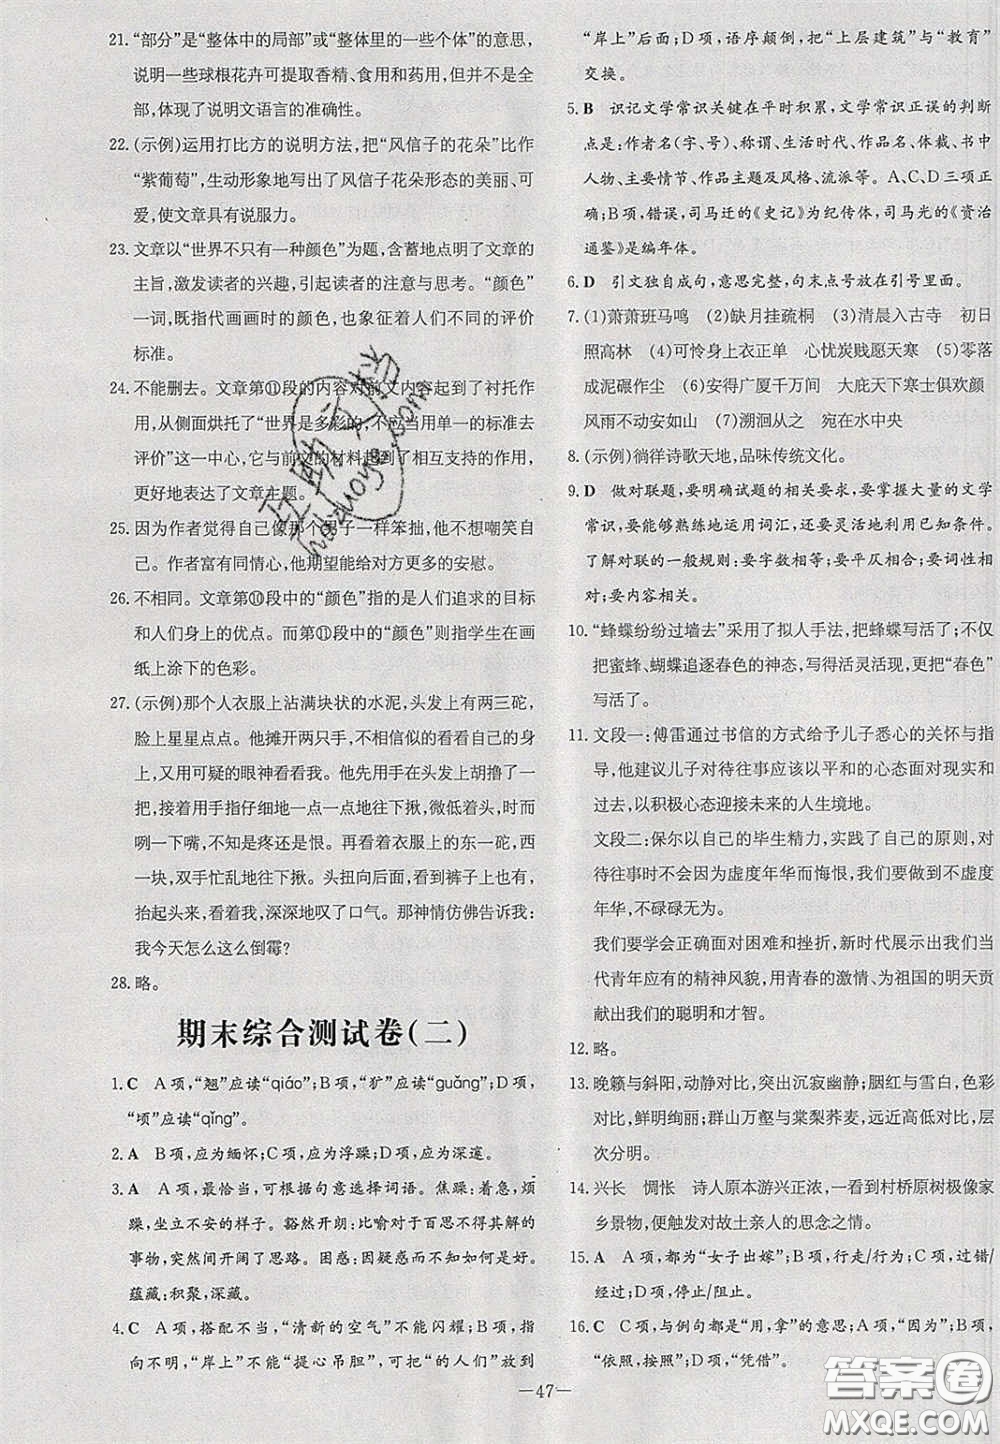 21. “部分”是“整体中的局部”或“整体里的一些个体”的意思，
说明一些球根花卉可提取香精、食用和药用，但并不是全
部，体现了说明文语言的准确性。
22. (示例)运用打比方的说明方法，把“风信子的花朵”比作
“紫葡萄”，生动形象地写出了风信子花朵形态的美丽、可
爱，使文章具有说服力。
23. 文章以“世界不只有一种颜色”为题，含蓄地点明了文章的
主旨，激发读者的兴趣，引起读者的注意与思考。“颜色”
一词，既指代画画时的颜色，也象征着人们不同的评价
标准。
24. 不能删去。文章第⑪段的内容对前文内容起到了衬托作
用，从侧面烘托了“世界是多彩的，不应当用单一的标准去
评价”这一中心，它与前文的材料起到了相互支持的作用，
更好地表达了文章主题。
25. 因为作者觉得自己像那个男子一样笨拙，他不想嘲笑自
己。作者富有同情心，他期望能给对方更多的安慰。
26. 不相同。文章第⑩段中的“颜色”指的是人们追求的目标
和人们身上的优点。而第⑪段中的“颜色”则指学生在画
纸上涂下的色彩。
27. (示例)那个人衣服上沾满块状的水泥，头发上有两三砣，
脸上星星点点。他摊开两只手，不相信似的看看自己的身
上，又用可疑的眼神看着我。他先用手在头发上胡撸了一
把，接着用手指仔细地一点一点地往下揪，微低着头，时而
咧一下嘴，不知是疼还是恨。再看着衣服上的东一砣，西
一块，双手忙乱地往下揪。头扭向后面，看到裤子上也是，
抬起头来，看着我，深深地叹了口气。那神情仿佛告诉我：
我今天怎么这么倒霉？
28. 略。
期末综合测试卷(二)
1. C A项，“翘”应读“qiáo”；B项，“犷”应读“guǎng”；D项，
“顷”应读“qǐng”。
2. A B项，应为缅怀；C项，应为浮躁；D项，应为深邃。
3. A A项，最恰当，可根据句意选择词语。焦躁：着急，烦
躁，坐立不安的样子。豁然开朗：比喻对于百思不得其解的
事物，突然间开阔了思路。困惑：因疑惑而不知如何是好。
蕴藏：积聚，深藏。
4. C A项，搭配不当，“清新的空气”不能闪耀；B项，指
向不明，“岸上”不能“提心吊胆”，可把“的人们”放到
“岸上”后面；D项，语序颠倒，把“上层建筑”与“教育”
交换。
5. B 识记文学常识关键在平时积累，文学常识正误的判断
点是：作者名(字、号)、称谓、生活时代、作品名、体裁、书中
人物、主要情节、作品主题及风格、流派等。A、C、D三项正
确；B项，错误，司马迁的《史记》为纪传体，司马光的《资治
通鉴》是编年体。
6. D 引文独自成句，意思完整，句末点号放在引号里面。
7. (1)萧萧班马鸣 (2)缺月挂疏桐 (3)清晨入古寺 初日
照高林 (4)可怜身上衣正单 心忧炭贱愿天寒 (5)零落
成泥碾作尘 (6)安得广厦千万间 大庇天下寒士俱欢颜
风雨不动安如山 (7)溯洄从之 宛在水中央
8. (示例)徜徉诗歌天地，品味传统文化。
9. D 做对联题，要明确试题的相关要求，要掌握大量的文学
常识，要能够熟练地运用词汇，还要灵活地利用已知条件。
了解对联的一般规则：要字数相等；要平仄相合；要词性相
对；要内容相关。
10. “蜂蝶纷纷过墙去”采用了拟人手法，把蜂蝶写活了；不仅
把蜜蜂、蝴蝶追逐春色的神态，写得活灵活现，更把“春色”
写活了。
11. 文段一：傅雷通过书信的方式给予儿子悉心的关怀与指
导，他建议儿子对待往事应该以平和的心态面对，应该
以积极心态迎接未来的人生境地。
文段二：保尔以自己的毕生精力，实践了自己的原则，对
往事不因为虚度年华而悔恨，告诉我们应该不虚度
年华，不碌碌无为。
我们要学会正确面对困难和挫折，新时代展示出我们当
代青年应有的精神风貌，用青春的激情、为祖国的明天贡
献出我们的聪明和才智。
12. 略。
13. 晚籁与斜阳，动静对比，突出沉寂幽静；胭红与雪白，色彩
对比，鲜明绚丽；群山万壑与棠梨荞麦，远近高低对比，层
次分明。
14. 兴长 惆怅 诗人原本游兴正浓，一看到村桥原树极像家
乡景物，便触发对故土亲人的思念之情。
15. A A项，都为“女子出嫁”；B项，行走/行为；C项，过错/
经过；D项，停止/阻止。
16. C C项，与例句都是“用，拿”的意思；A项，“因为”；B项，
“依照，按照”；D项，“凭借”。
—47—
互助文档
huzhuwang.com
答案圈
MXQE.COM